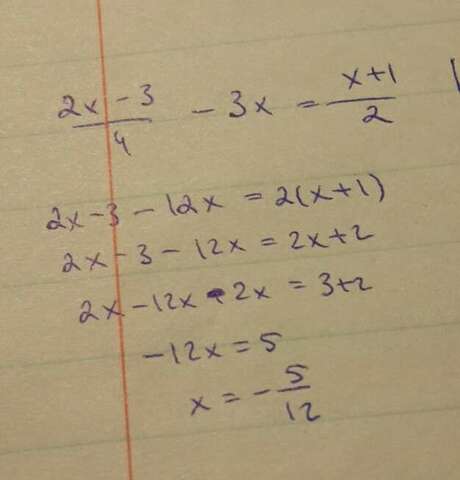 (2x - 3)/4 - 3x = (x+1)/2
2x - 3 - 12x = 2(x+1)
2x - 3 - 12x = 2x + 2
2x - 12x - 2x = 3+2
-12x = 5
x = - 5/12